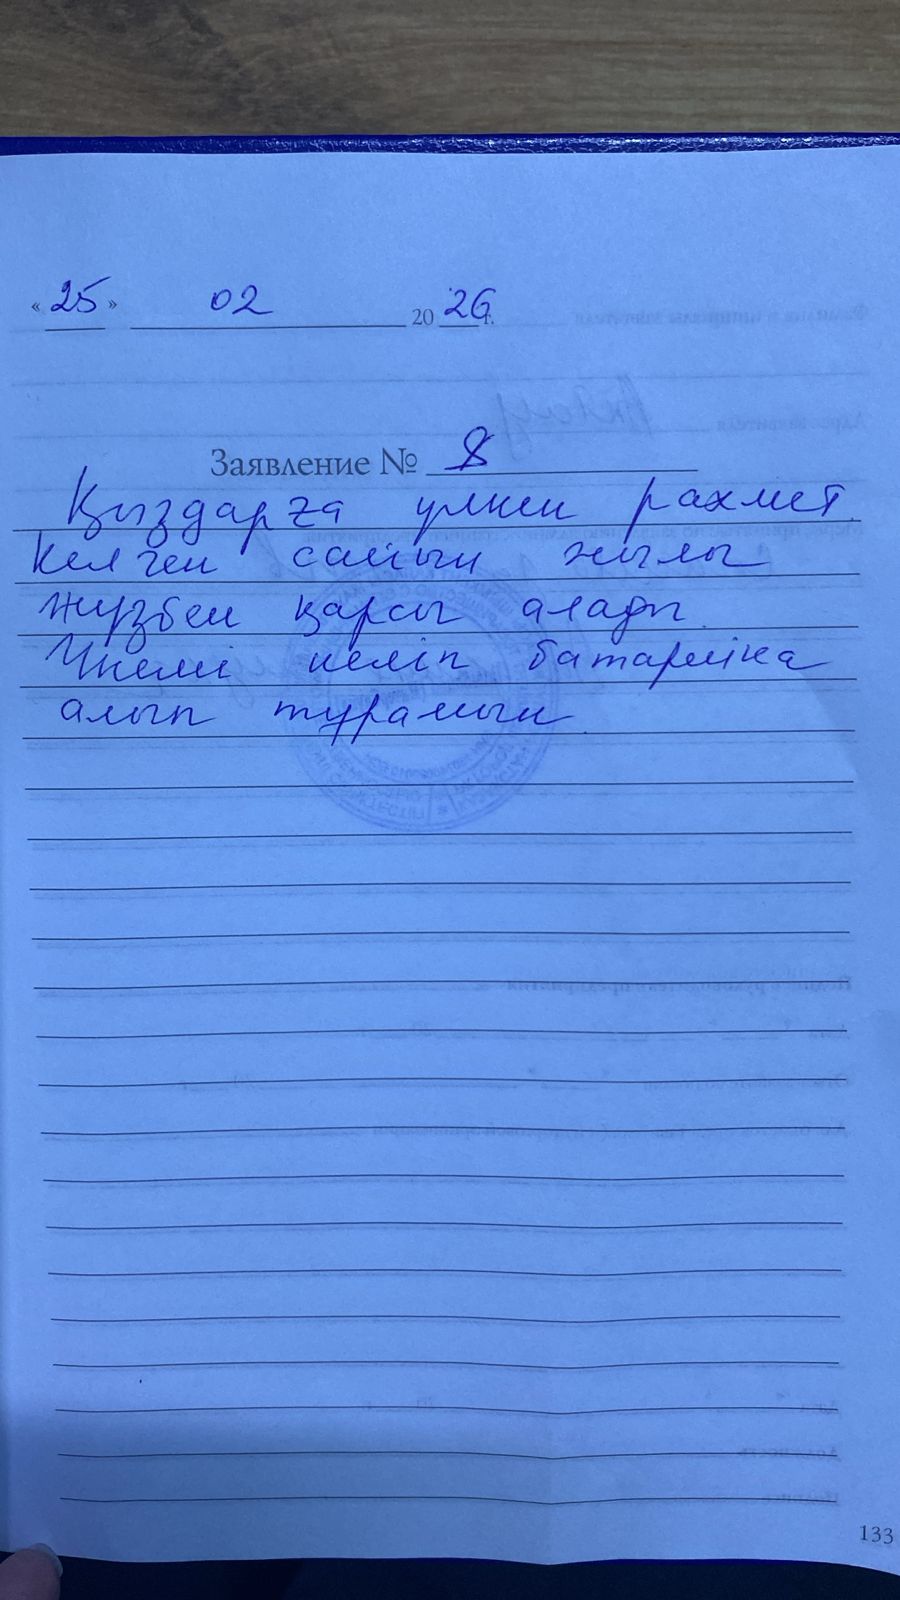 « 25 » 02 20 26 г.
Заявление № 8
Қыздарға үлкен рахмет
келген сайын жылы
жүзбен қарсы алады.
Үнемі келіп батарейка
алып тұрамын.
133